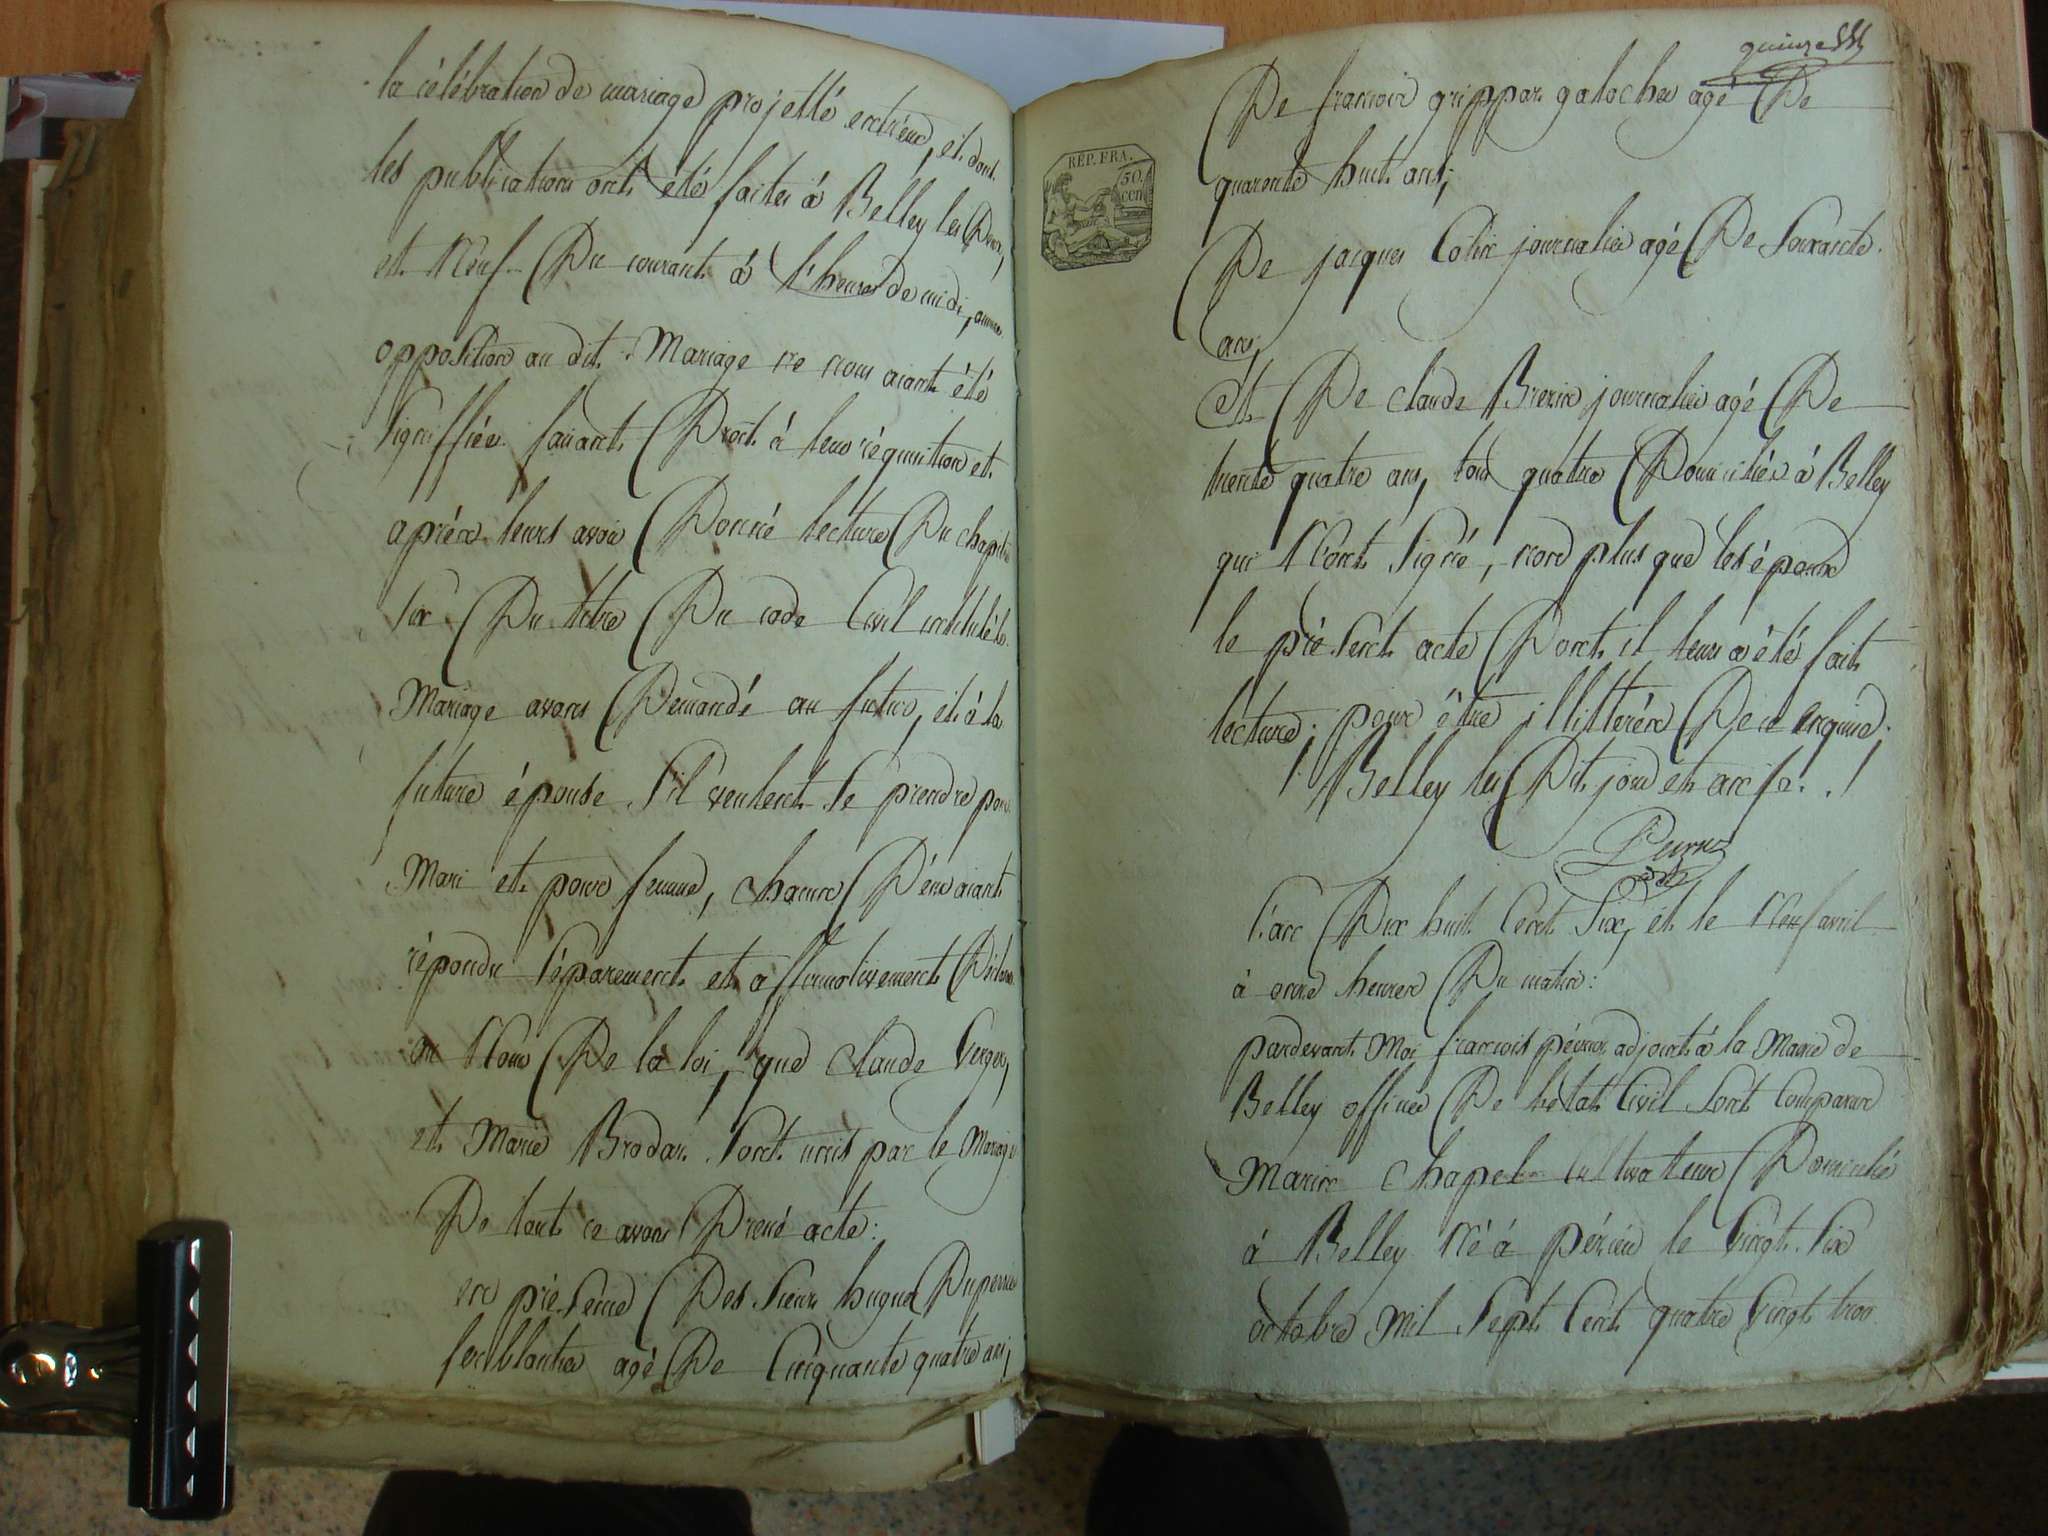 la célébration de mariage projetté entr'eux, et dont
les publications ont été faites à Belley les Deux,
et Neuf Du courant à l'heure de midi, aucune
opposition au dit Mariage ne nous aiant été
Signiffiée faisant Droit à leur réquisition et
après leurs avoir Donné lecture Du chapitre
six Du titre Du code Civil intitulé le
Mariage avons Demandé au futur, et à la
future épouse s'il veulent se prendre pour
Mari et pour femme, chacun D'eux aiant
répondu séparement et affirmativement Déclarons
au Nom De la loi, que Claude Verger,
et Marie Brodar sont unis par le Mariage
De tout ce avons Dressé acte:
en présence Des sieur hugue Duperrier
ferblantier agé De Cinquante quatre ans,
quinze
REP. FRA.
50.
cen
De françois grippar galocher agé De
quarente huit ans;
De jacques Cotin journalier agé De soixante
ans.
et De claude Brenin journalier agé De
trente quatre ans, tous quatre Domiciliés à Belley
qui N'ont signé, non plus que les époux
le présent acte Dont il leur a été fait
lecture; pour être illitterés De ce enquis.
Belley les Dit jour et an fo..!
l'an Dix huit Cent six, et le Neuf avril
à onze heures Du matin:
pardevant Moi françois péysson adjoint à la Mairie de
Belley officier De l'état Civil sont Comparus
Marin Chapel Cultivateur Domicilié
à Belley Né à pézieu le vingt six
octobre Mil sept Cent quatre vingt trois